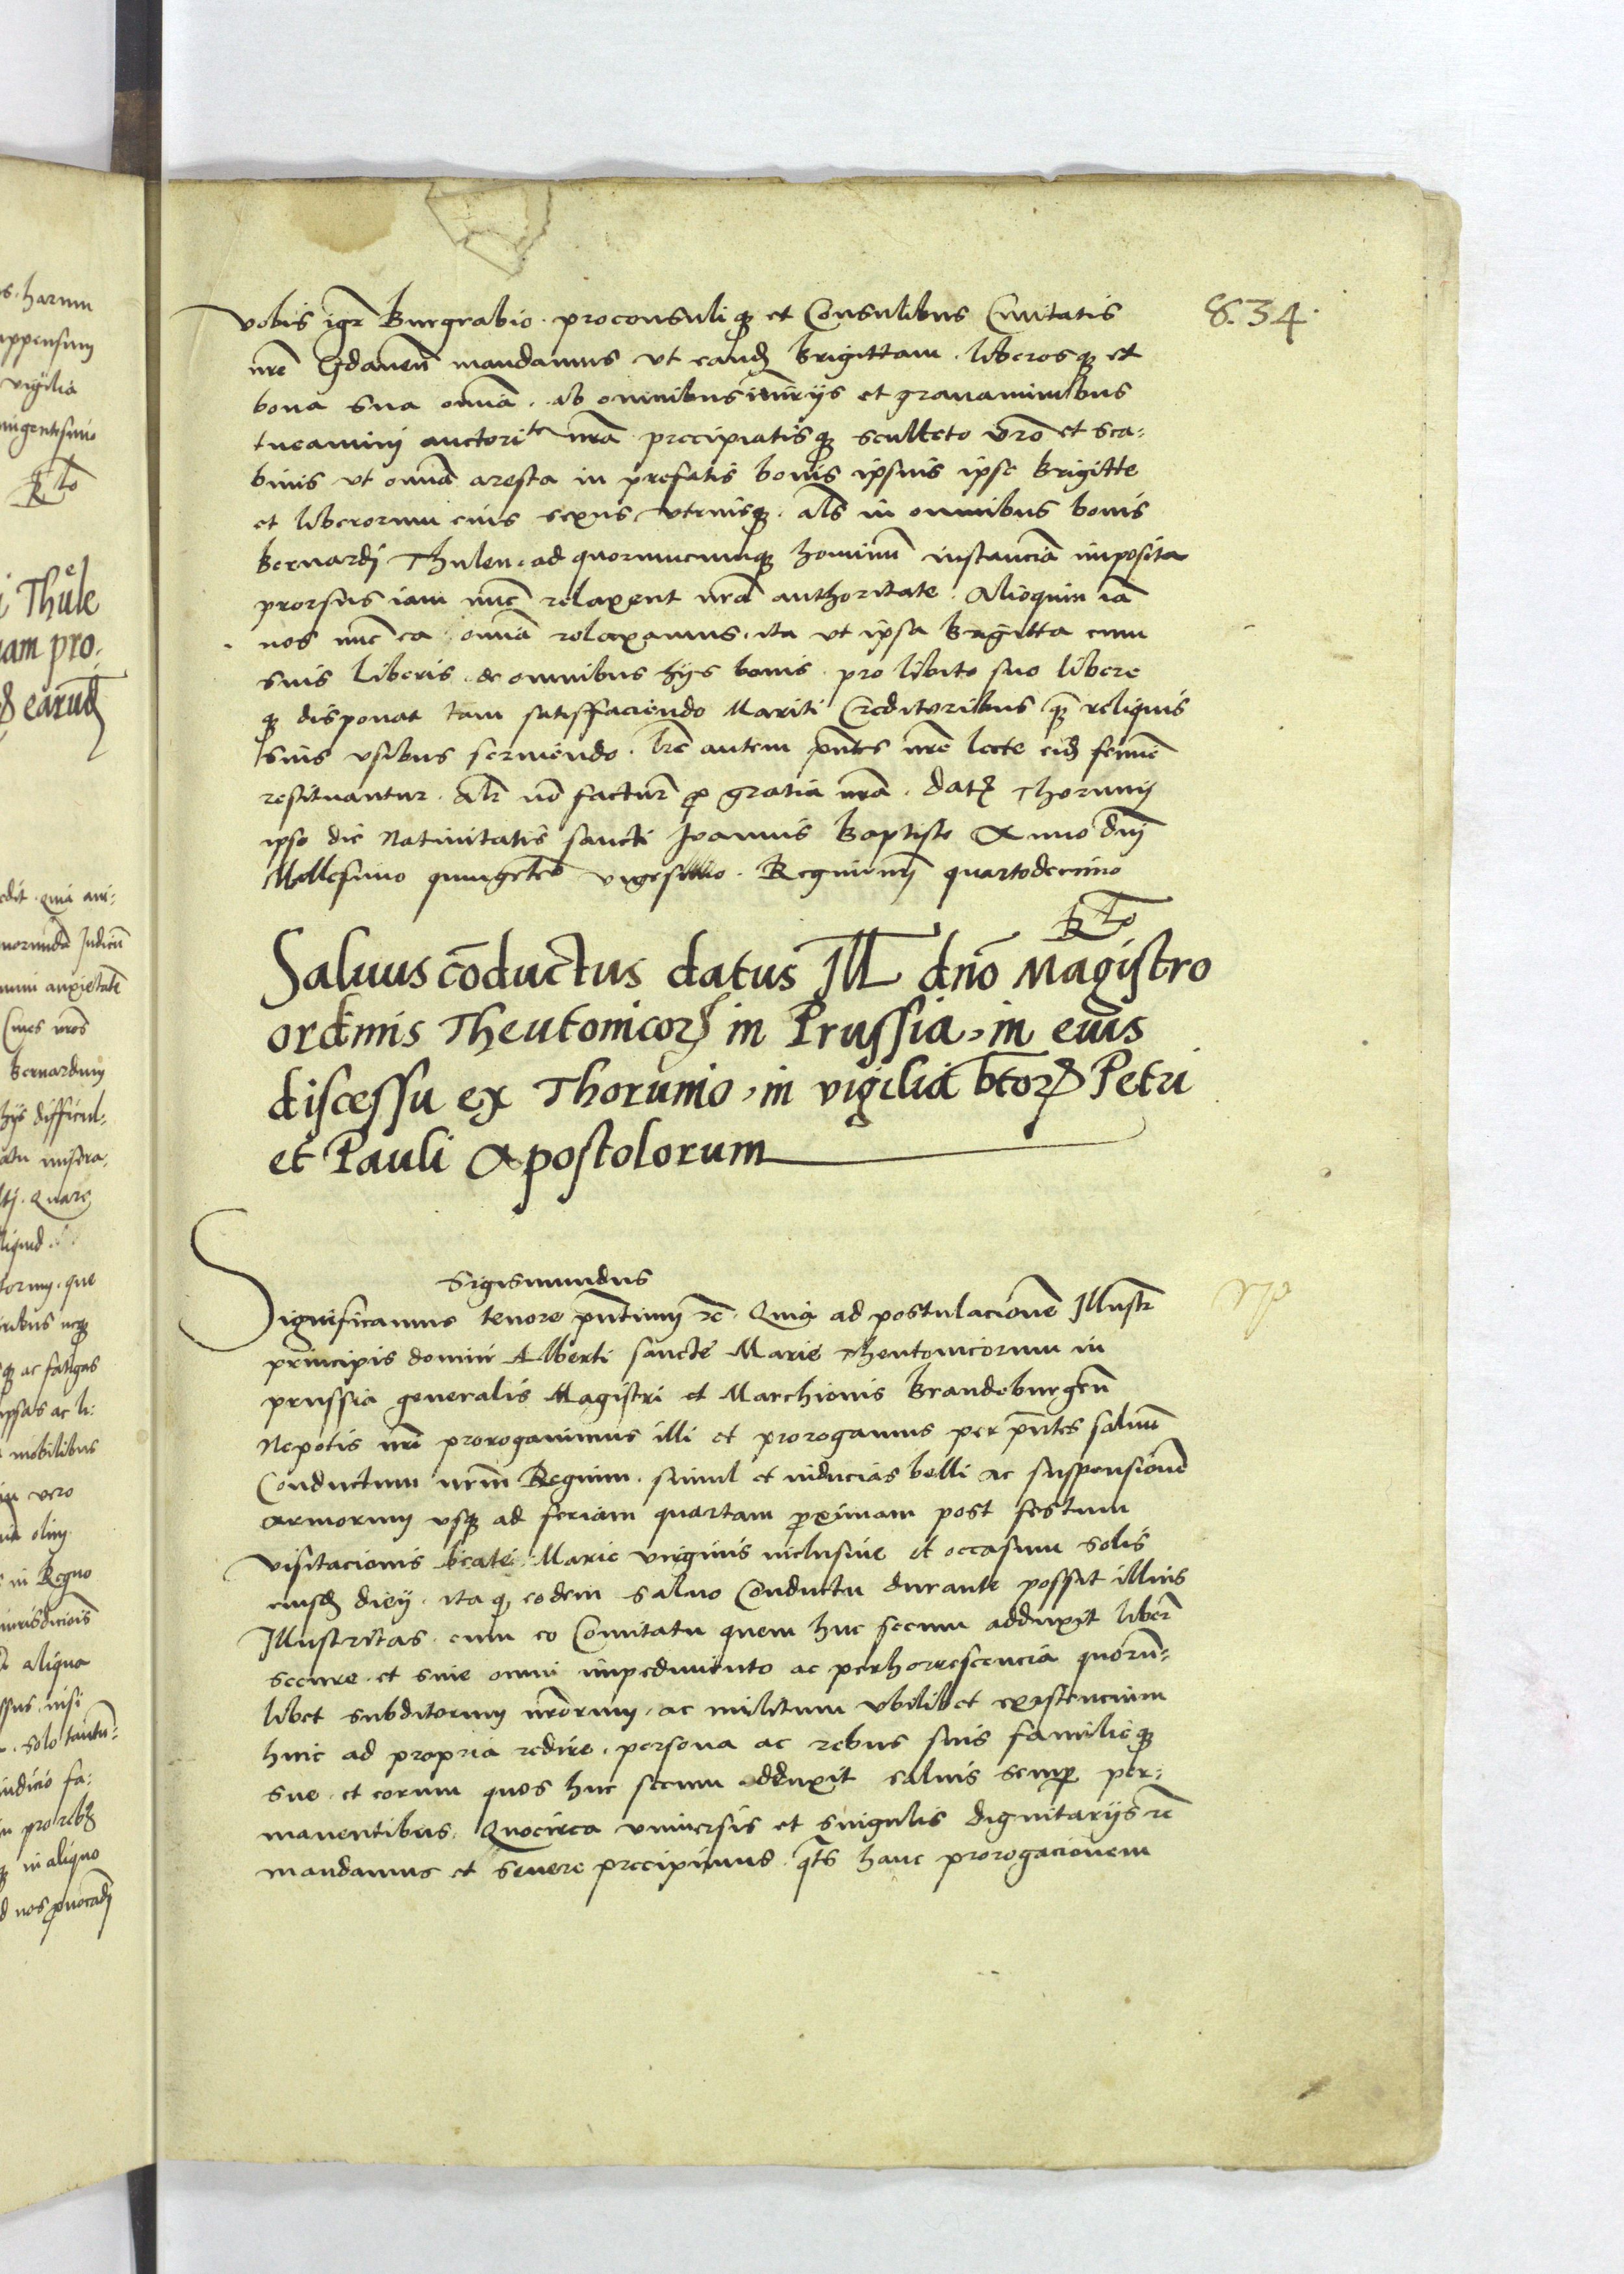 8.34.
vobis igr Burgrabio. proconsuliq et Consulibus Civitatis
nre Gdanen mandamus ut eand Brigittam. liberosq et
bona sua omia. ab omnibus iniurijs et gravaminibus
tueamini auctorite nra precipiatisq sculteto vro et sca:
binis ut omia aresta in prefatis bonis ipsius ipse Brigitte
et liberorum eius sexus utriusq. als in omnibus bonis
Bernardj Thulen. ad quorumcumq hominu instancia imposita
prorsus iam nuc relaxent nra authoritate. Alioquin ia
nos nuc ea omia relaxamus. ita ut ipsa Brigitta cum
suis liberis. de omnibus hijs bonis. pro libito suo libere
q disponat tam satisffaciendo Mariti Creditoribus q reliquis
suis usibus serviendo. lre autem pntes nre lecte eid femine
restituantur. Alr no factur p gratia nra. Dat Thorunij
ipso die Nativitatis sancti Joannis Baptiste Anno dnj
Millesimo quingetes vigesimo. Regni nrj quartodecimo
Rto
Salvus coductus datus Ill dno Magistro
ordinis Theutonicor in Prussia, in euis
discessu ex Thorunio, in vigilia btor Petri
et Pauli Apostolorum
Sigismundus
Significamus tenore pntium rc. Quia ad postulacione Illustr
principis domini Alberti sancte Marie Theutonicorum in
prussia generalis Magistri et Marchionis Brandeburgen
Nepotis nri prorogavimus illi et prorogamus per pntes salvu
Conductum nrm Regium. simul et inducias belli ac suspensione
armorum usq ad feriam quartam pximam post festum
visitacionis beate Marie virginis inclusive et occasum solis
eiusd diej. ita q eodem salvo Conductu durante possit illius
Illustritas. cum eo Comitatu quem huc secum adduxit liber
secure. et sine omni impedimento ac perhorrescencia quoru:
libet subditorum nrorum. ac militum ubilibet existencium
hinc ad propria redire. persona ac rebus suis familieq
sue. et eorum quos huc secum adduxit salvis semp per:
manentibus. Quocirca universis et singulis dignitarijs rc
mandamus et severe precipimus. qts hanc prorogacionem